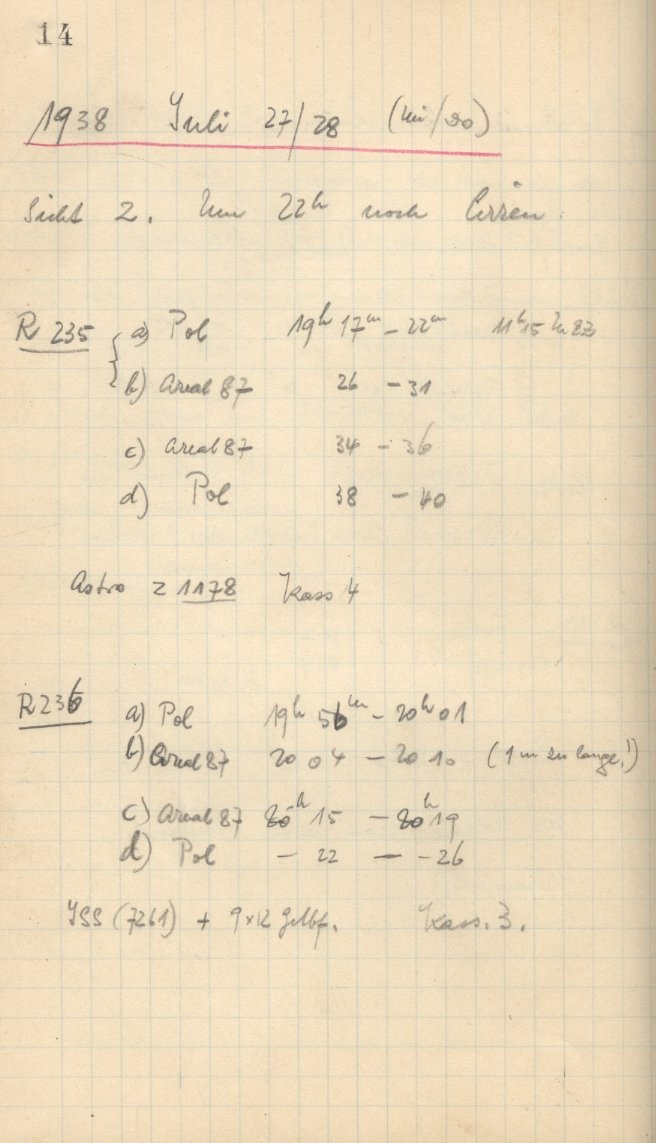 14
1938 Juli 27/28 (Mi/Do)
Sicht 2. Um 22h noch Cirren.
R 235 a) Pol 19h 17m - 22m 11h15
b) Areal 87 26 - 31
c) Areal 87 34 - 36
d) Pol 38 - 40
Astro Z 1178 Kass 4
R 236 a) Pol 19h 56m - 20h 01
b) Areal 87 20 04 - 20 10 (1m zu lange!)
c) Areal 87 20h 15 - 20h 19
d) Pol - 22 - - 26
ISS (7261) + 9x12 Gelbf. Kass. 3.